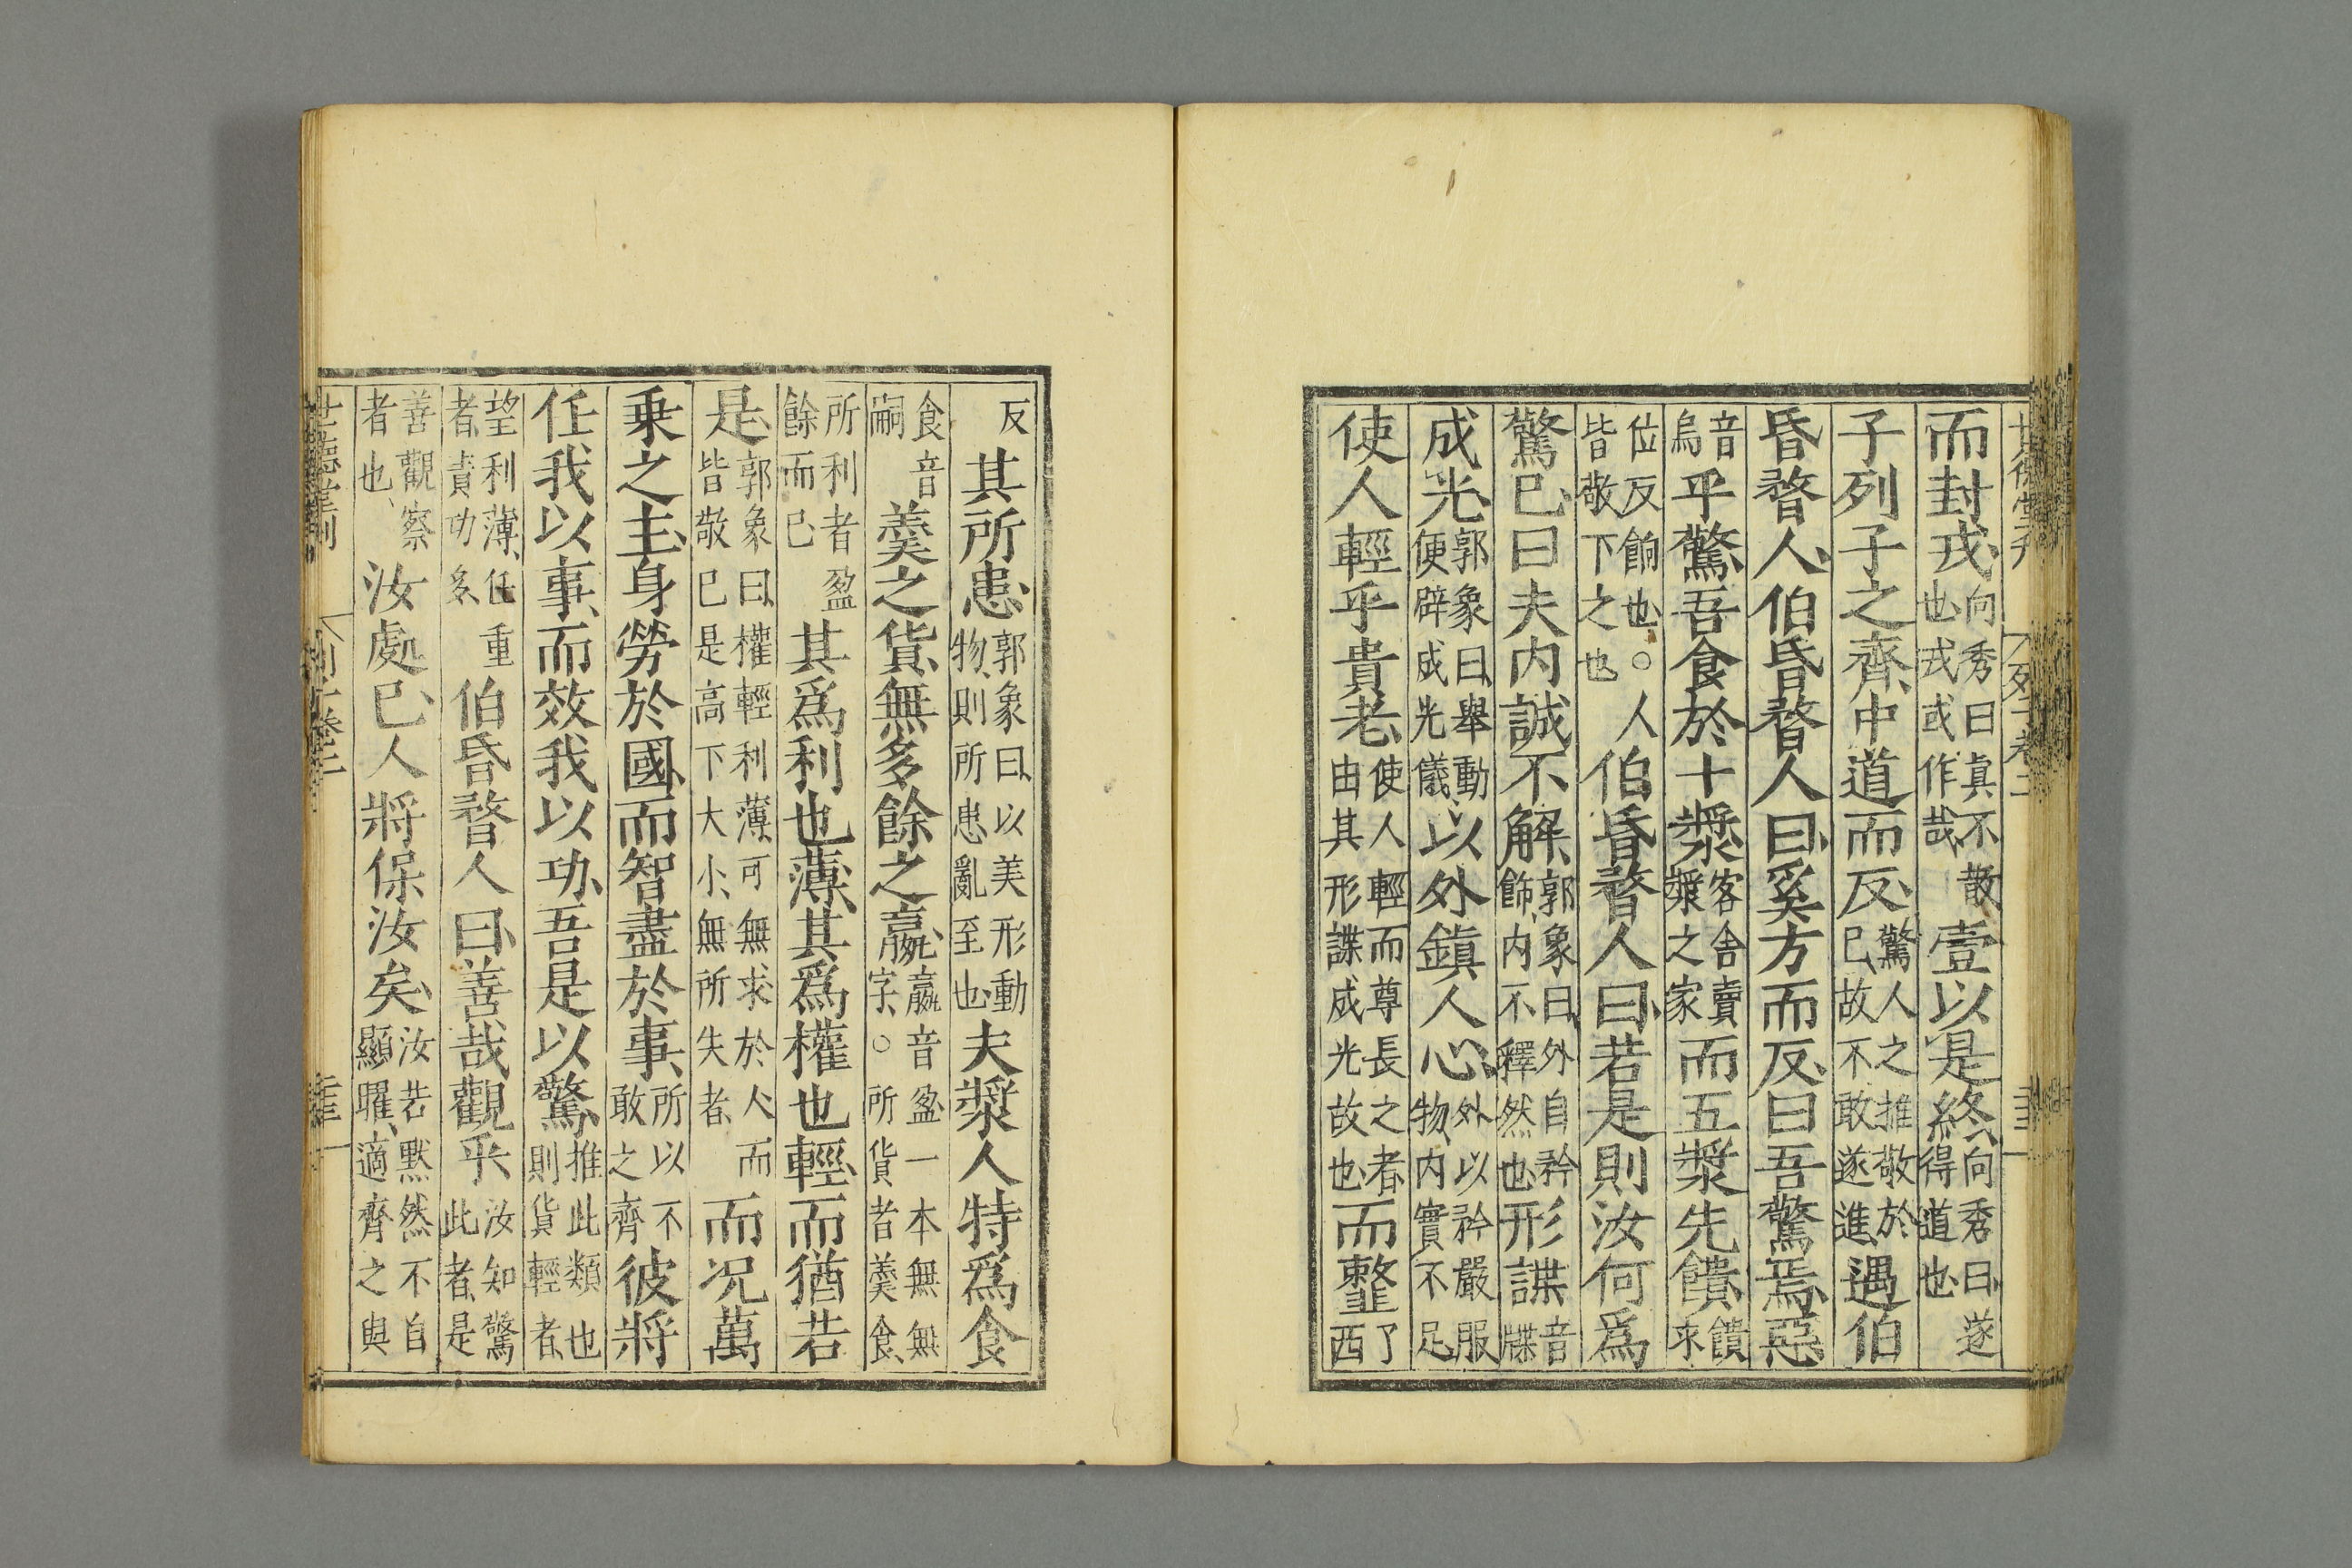 而封戎向秀曰真不散也戎或作哉壹以是終向秀曰遂得道也
子列子之齊中道而反驚人之推敬於已故不敢遂進遇伯
昏瞀人伯昏瞀人曰奚方而反曰吾驚焉惡
音烏乎驚吾食於十漿客舍賣漿之家而五漿先饋饋求
位反餉也○人皆敬下之也伯昏瞀人曰若是則汝何爲
驚已曰夫內誠不解郭象曰外自矜飾內不釋然也形諜音牒
成光郭象曰舉動便辟成光儀以外鎮人心外以矜嚴服物內實不足
使人輕乎貴老使人輕而尊長之者由其形諜成光故也而𩐎了西
反其所患郭象曰以美形動物則所患亂至也夫漿人特爲食
食音嗣羹之貨無多餘之嬴嬴音盈一本無無字○所貨者羹食
所利者盈餘而已其爲利也薄其爲權也輕而猶若
是郭象曰權輕利薄可無求於人而皆敬已是高下大小無所失者而况萬
乗之主身勞於國而智盡於事所以不敢之齊彼將
任我以事而效我以功吾是以驚推此類也則貨輕者
望利薄任重者責功多伯昏瞀人曰善哉觀乎汝知驚此者是
善觀察者也汝處已人將保汝矣汝若默然不自顯曜適齊之與
世德堂刊 列子卷二